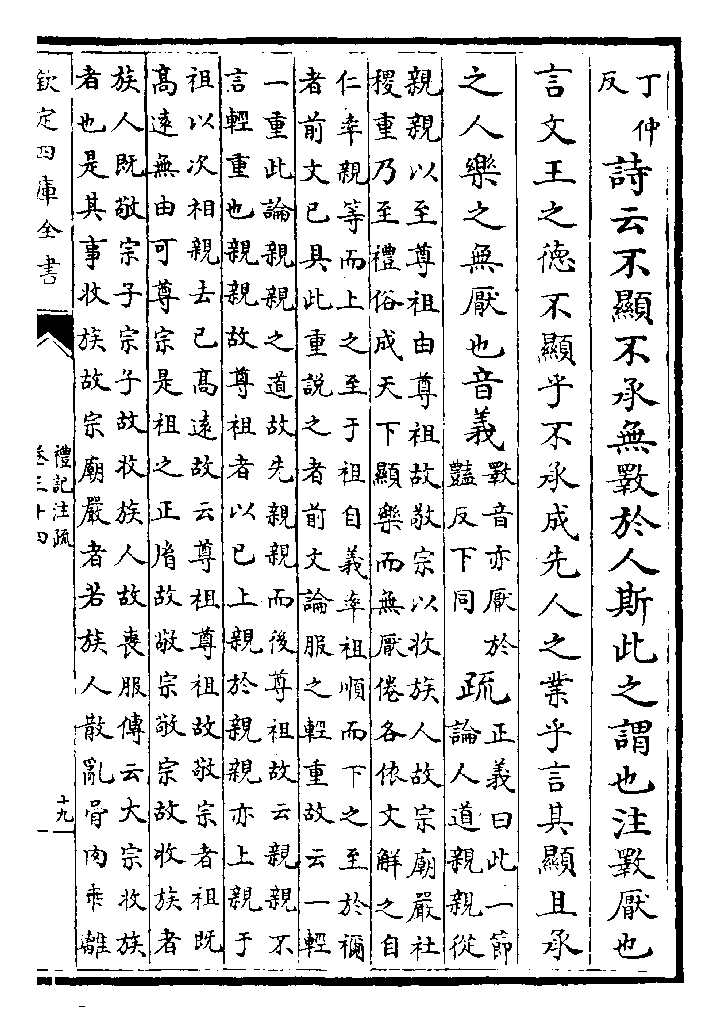 丁仲
反
詩云不顯不承無斁於人斯此之謂也注斁厭也
言文王之德不顯乎不承成先人之業乎言其顯且承
之人樂之無厭也音義
斁音亦厭於
豔反下同
疏
正義曰此一節
論人道親親從
親親以至尊祖由尊祖故敬宗以收族人故宗廟嚴社
稷重乃至禮俗成天下顯樂而無厭倦各依文解之自
仁率親等而上之至于祖自義率祖順而下之至於禰
者前文已具此重説之者前文論服之輕重故云一輕
一重此論親親之道故先親親而後尊祖故云親親不
言輕重也親親故尊祖者以已上親於親親亦上親于
祖以次相親去已髙逺故云尊祖尊祖故敬宗者祖既
髙逺無由可尊宗是祖之正胤故敬宗敬宗故收族者
族人既敬宗子宗子故收族人故喪服傳云大宗收族
者也是其事收族故宗廟嚴者若族人散亂骨肉乖離
欽定四庫全書
禮記注疏
卷三十四
十九